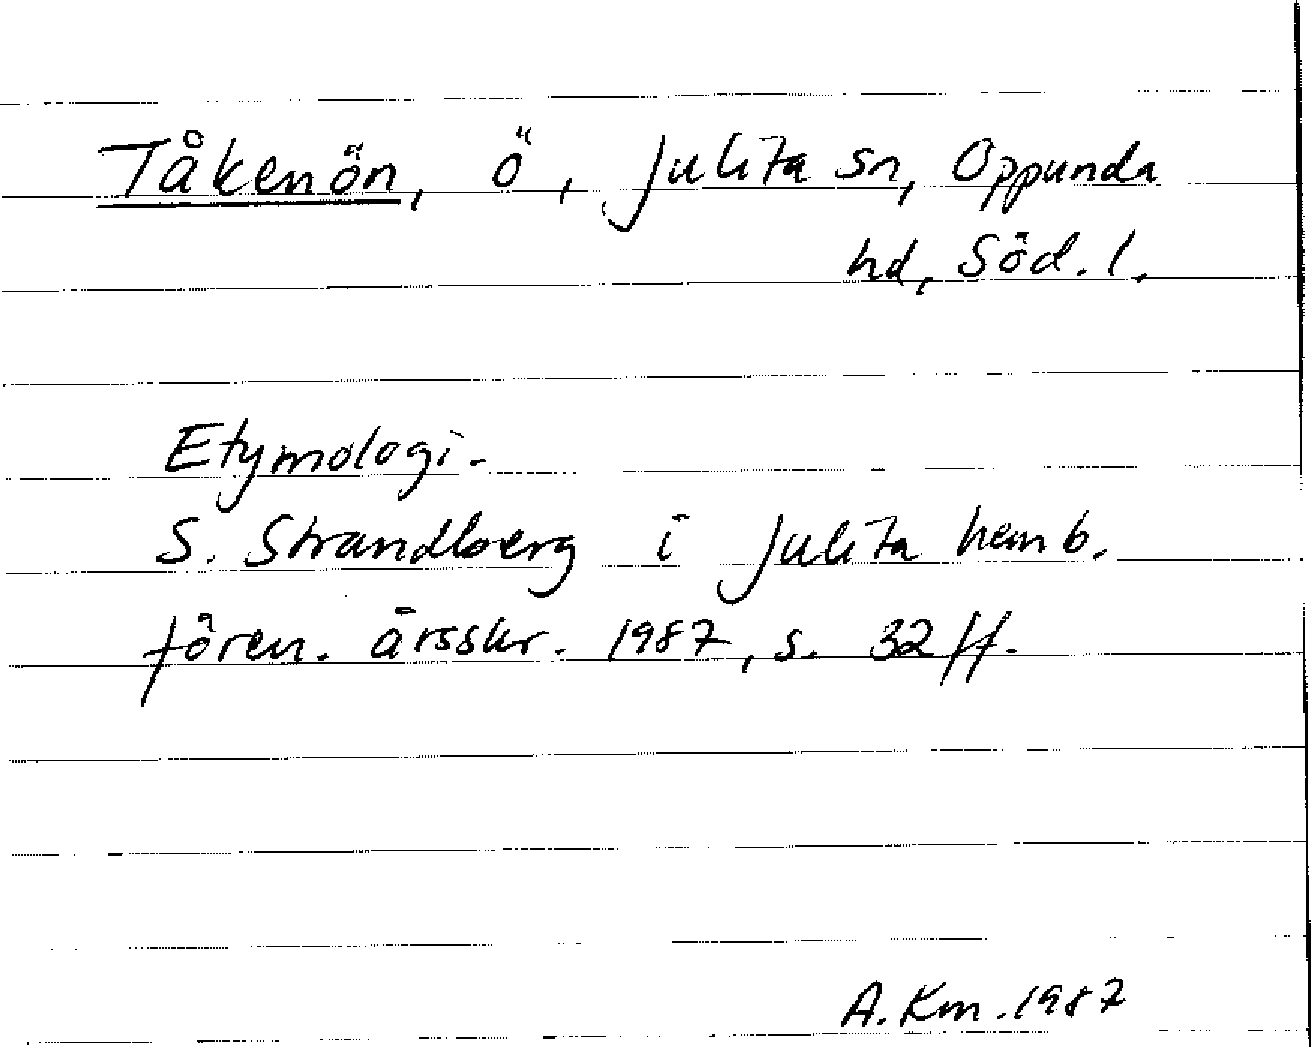 Tåkenön, ö, Julita sn, Oppunda
hd, Söd. l.
Etymologi.
S. Strandberg i Julita hemb.
fören. årsskr. 1987, s. 32 ff.
A. Km. 1987